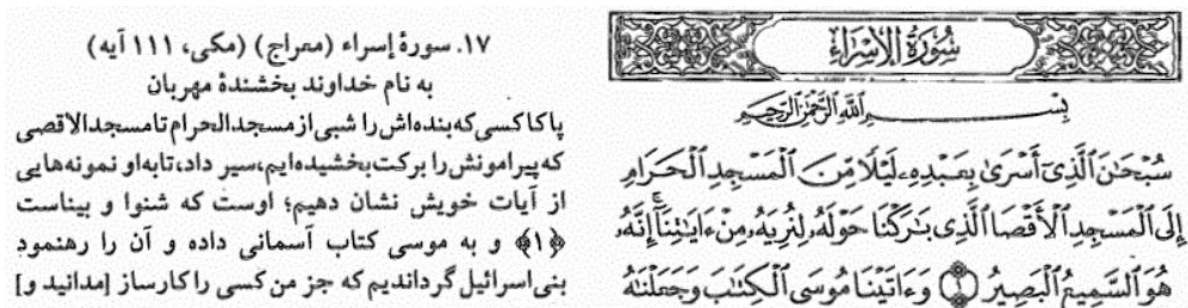 سُورَةُ الإِسْرَاءِ
بِسْمِ اللَّهِ الرَّحْمَٰنِ الرَّحِيمِ
سُبْحَٰنَ ٱلَّذِىٓ أَسْرَىٰ بِعَبْدِهِۦ لَيْلًا مِّنَ ٱلْمَسْجِدِ ٱلْحَرَامِ
إِلَى ٱلْمَسْجِدِ ٱلْأَقْصَا ٱلَّذِى بَٰرَكْنَا حَوْلَهُۥ لِنُرِيَهُۥ مِنْ ءَايَٰتِنَآ ۚ إِنَّهُۥ
هُوَ ٱلسَّمِيعُ ٱلْبَصِيرُ ﴿١﴾ وَءَاتَيْنَا مُوسَى ٱلْكِتَٰبَ وَجَعَلْنَٰهُ
۱۷. سورهٔ إسراء (معراج) (مکی، ۱۱۱ آیه)
به نام خداوند بخشندهٔ مهربان
پاکا کسی که بنده‌اش را شبی از مسجدالحرام تا مسجدالاقصی
که پیرامونش را برکت بخشیده‌ایم، سیر داد، تا به او نمونه‌هایی
از آیات خویش نشان دهیم؛ اوست که شنوا و بیناست
﴿۱﴾ و به موسی کتاب آسمانی داده و آن را رهنمود
بنی‌اسرائیل گرداندیم که جز من کسی را کارساز [مدانید و]